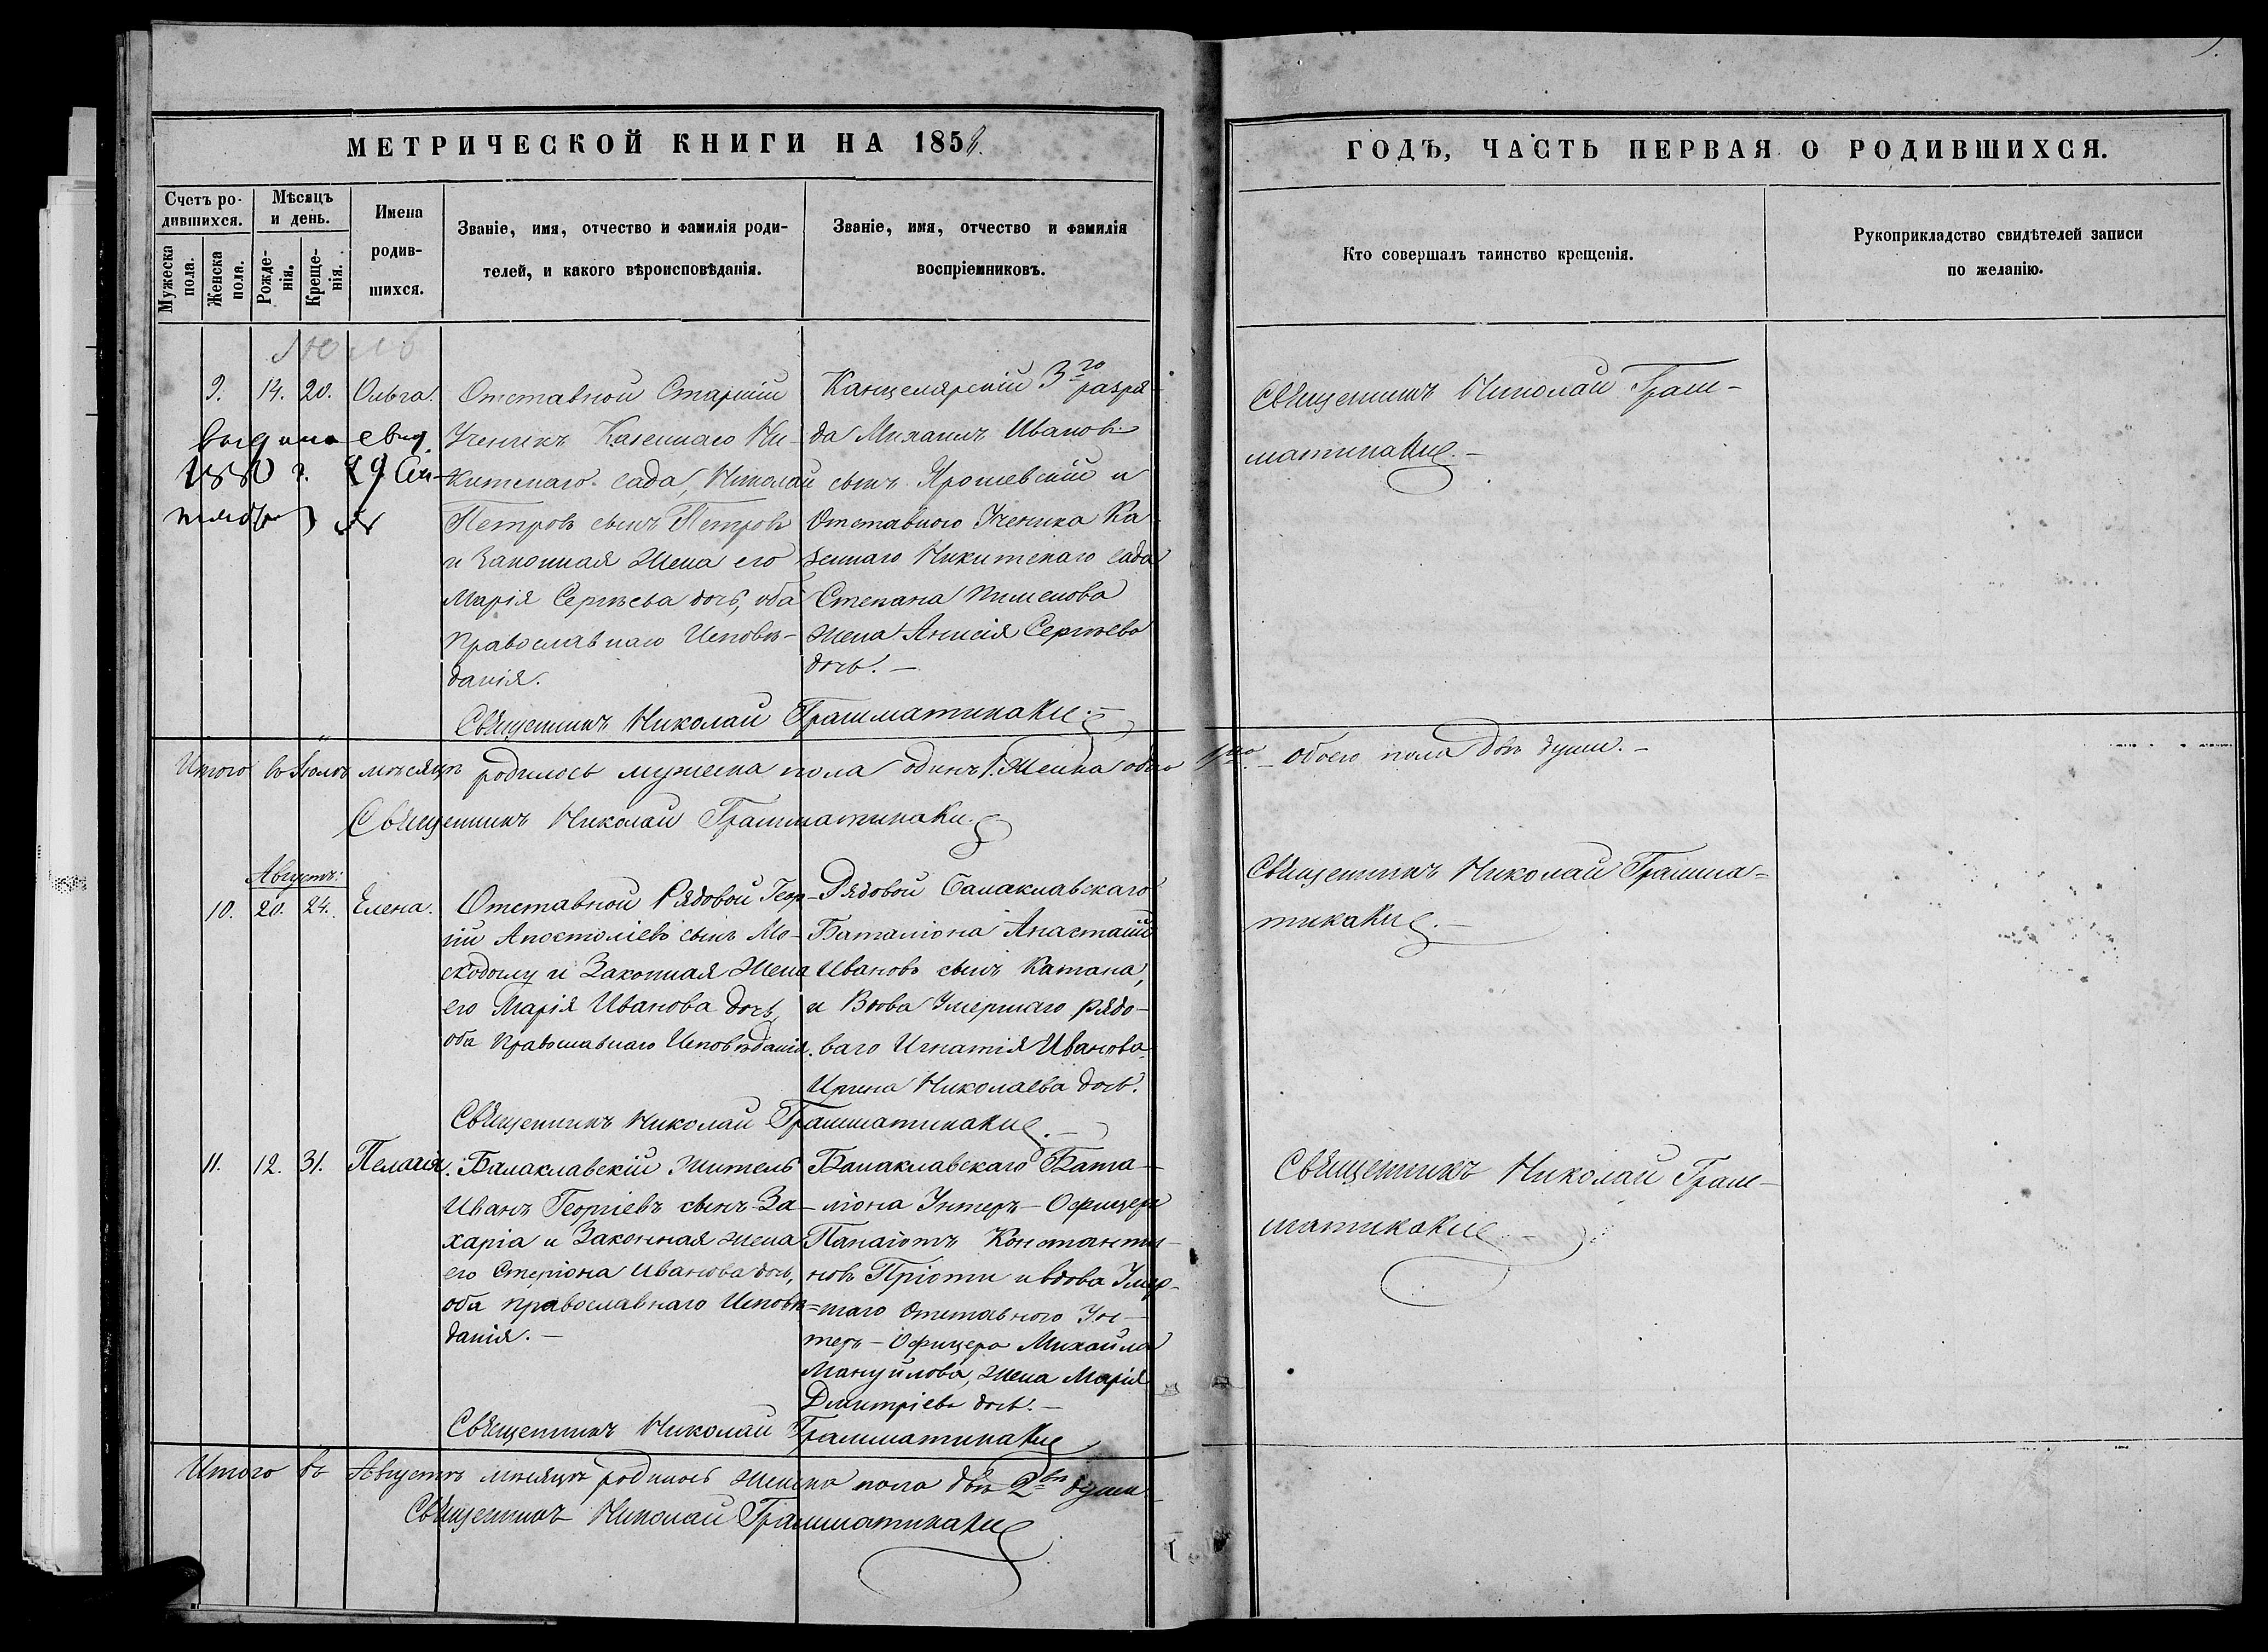 МЕТРИЧЕСКОЙ КНИГИ НА 185
ГОДЪ, ЧАСТЬ ПЕРВАЯ О РОДИВШИХСЯ.
Счетъ ро-
дившихся.
Мѣсяцъ
и день.
Имена
родив-
шихся.
Званіе, имя, отчество и фамилія роди-
телей, и какого вѣроисповѣданія.
Званіе, имя, отчество и фамилія
воспріемниковъ.
Кто совершалъ таинство крещенія.
Рукоприкладство свидѣтелей записи
по желанію.
Мужеска
пола.
Женска
пола.
Рожде-
нія.
Креще-
нія.
Июль
9. 14. 20. Ольга.
Отставной Старшій
Ученикъ Казеннаго Ни-
китскаго сада, Николай
Петровъ сынъ Петровъ
и Законная Жена его
Марія Сергѣева дочь, оба
Православнаго Исповѣ-
данія.
Канцелярскій 3го разря-
да Михаилъ Ивановъ
сынъ Ярошевскій и
Отставного Ученика Ка
зеннаго Никитскаго сада
Степана Пименова
жена Анисія Сергѣева
дочь.
1880 г.
Священникъ Николай Грам-
матикаки.
Священникъ Николай Грамматикаки.
Итого въ Іюлѣ мѣсяцѣ родилось мужеска пола одинъ 1. Женска одна 1на. обоего пола двѣ души.
Священникъ Николай Грамматикаки
Августъ:
10. 20. 24. Елена.
Отставной Рядовой Геор-
гій Апостоліевъ сынъ Мо-
сходому и Законная Жена
его Марія Иванова дочь,
оба Православнаго Исповѣданія.
Рядовой Балаклавскаго
Баталіона Анастасій
Ивановъ сынъ Катана,
и Вдова Умершаго рядо-
ваго Игнатія Иванова
Ирина Николаева дочь.
Священникъ Николай Грамма-
тикаки.
Священникъ Николай Грамматикаки.
11. 12. 31. Пелагія.
Балаклавскій житель
Иванъ Георгіевъ сынъ За-
харіа и Законная жена
его Стеріона Иванова дочь,
оба православнаго Исповѣ-
данія.
Балаклавскаго Бата-
ліона Унтеръ-Офицеръ
Панаіотъ Константи-
новъ Пріоти и вдова Умер-
шаго Отставного Ун-
теръ-Офицера Михаила
Мануйлова, жена Марія
Дмитріева дочь.
Священникъ Николай Грам-
матикаки
Священникъ Николай Грамматикаки
Итого въ Августѣ мѣсяцѣ родилось женска пола двѣ 2вѣ души
Священникъ Николай Грамматикаки